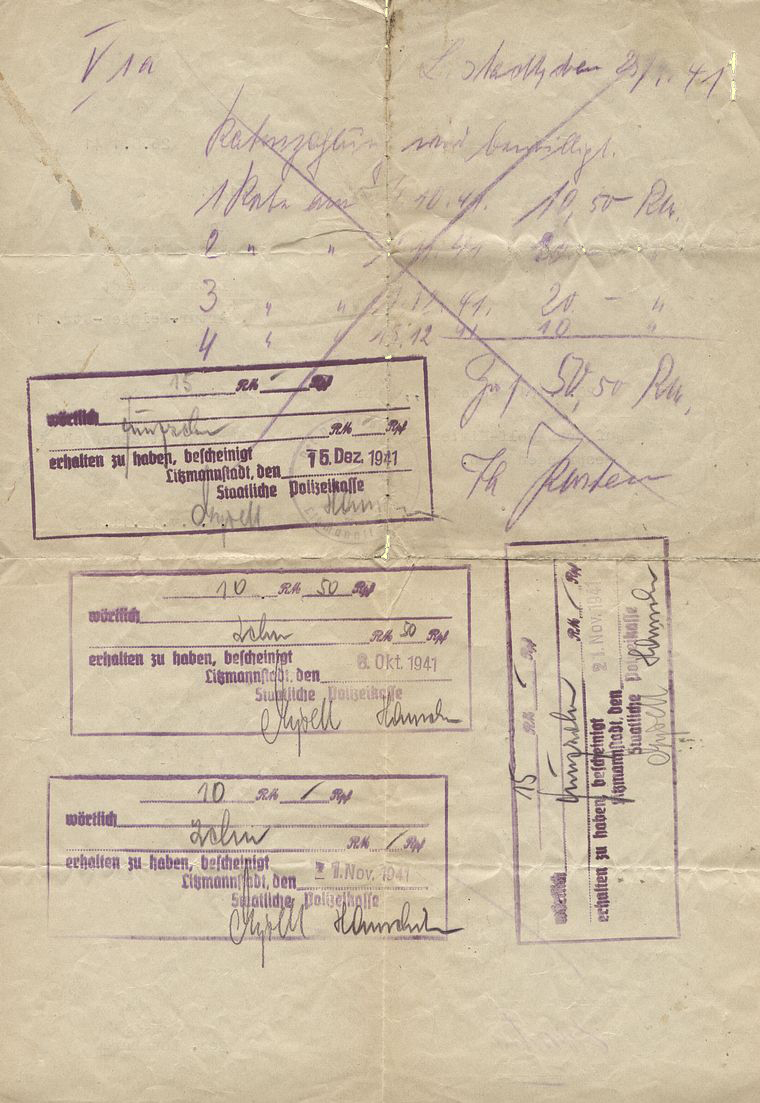 V 1a
L.stadt, den .41
Ratenzahlung wird bewilligt.
1 Rate am .10.41. 10,50 Rm.
2 " " .11.41 "
3 " " .41. 20 - "
4 " " 15.12 41. 10 "
50,50 Rm.
15 RM - Rpf
wörtlich
fünfzehn RM - Rpf
erhalten zu haben, bescheinigt
Litzmannstadt, den 15. Dez. 1941
Staatliche Polizeikasse
10 RM 50 Rpf
wörtlich
zehn RM 50 Rpf
erhalten zu haben, bescheinigt
Litzmannstadt, den 6. Okt. 1941
Staatliche Polizeikasse
15 RM - Rpf
wörtlich fünfzehn RM / Rpf
erhalten zu haben, bescheinigt
Litzmannstadt, den 21. Nov. 1941
Staatliche Polizeikasse
10 RM / Rpf
wörtlich
zehn RM / Rpf
erhalten zu haben, bescheinigt
Litzmannstadt, den 1. Nov. 1941
Staatliche Polizeikasse